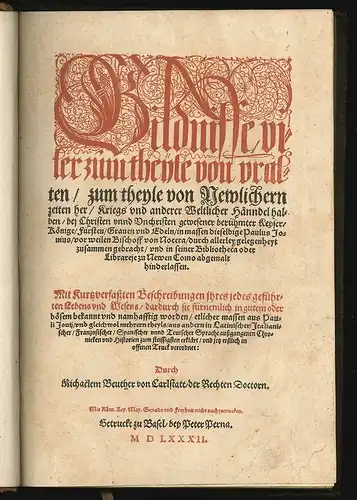 Bildnisse vi-
ler zum theyle von vral-
ten / zum theyle von Newlichern
zeiten her / Kriegs vnd anderer Weltlicher Hänndel hal-
ben / bej Christen vnnd Vnchristen gewesener berühmter Keyser /
Könige / Fürsten / Grauen vnd Edeln / in massen dieselbige Paulus Jo-
uius / vor weilen Bischoff von Nocera / durch allerley gelegenheyt
zusammen gebracht / vnd in seiner Bibliotheca oder
Librareje zu Newen Como abgemalt
hinderlassen.
Mit Kurtzverfaßten Beschreibungen jhres jedes geführ-
ten Lebens vnd Wesens / dardurch sie fürnemlich in gutem oder
bösem bekannt vnd namhafftig worden / etlicher massen aus Pau-
li Jouij / vnd gleichwol mehrern theyls / aus andern in Latinischer / Italiani-
scher / Frantzösischer / Spanischer vnnd Teutscher Sprache außgangenen Chro-
nicken vnd Historien zum fleissigsten erklärt / vnd jetz erstlich in
offenen Truck verordnet :
Durch
Michaelem Beuther von Carlstatt / der Rechten Doctorn.
Mit Röm. Key. May. Genade vnd Freyheit nicht nachzutrucken.
Getruckt zu Basel / bey Peter Perna.
M D LXXXII.